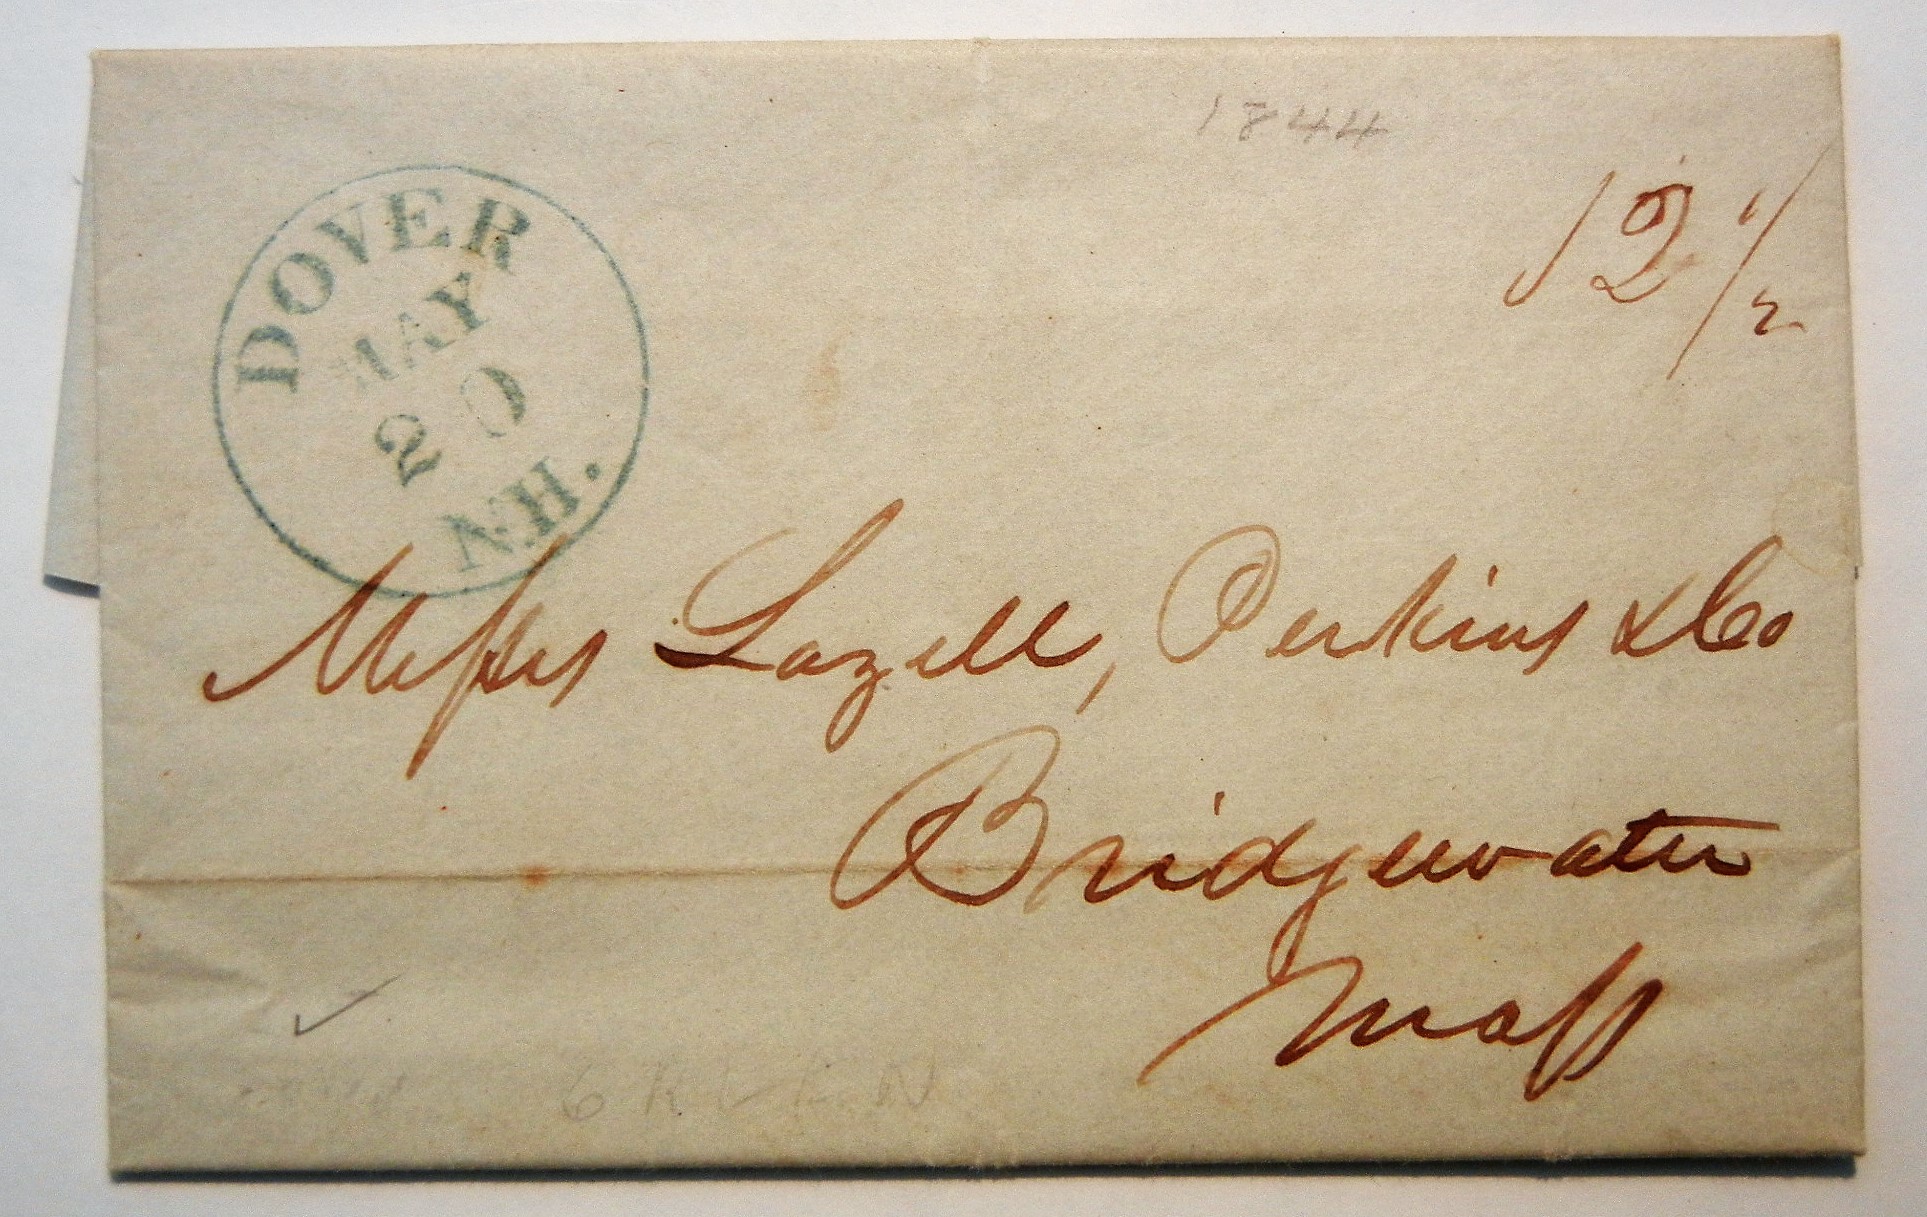 1844
12 1/2
DOVER
MAY
20
N.H.
Messrs Lazell, Perkins & Co
Bridgewater
Mass